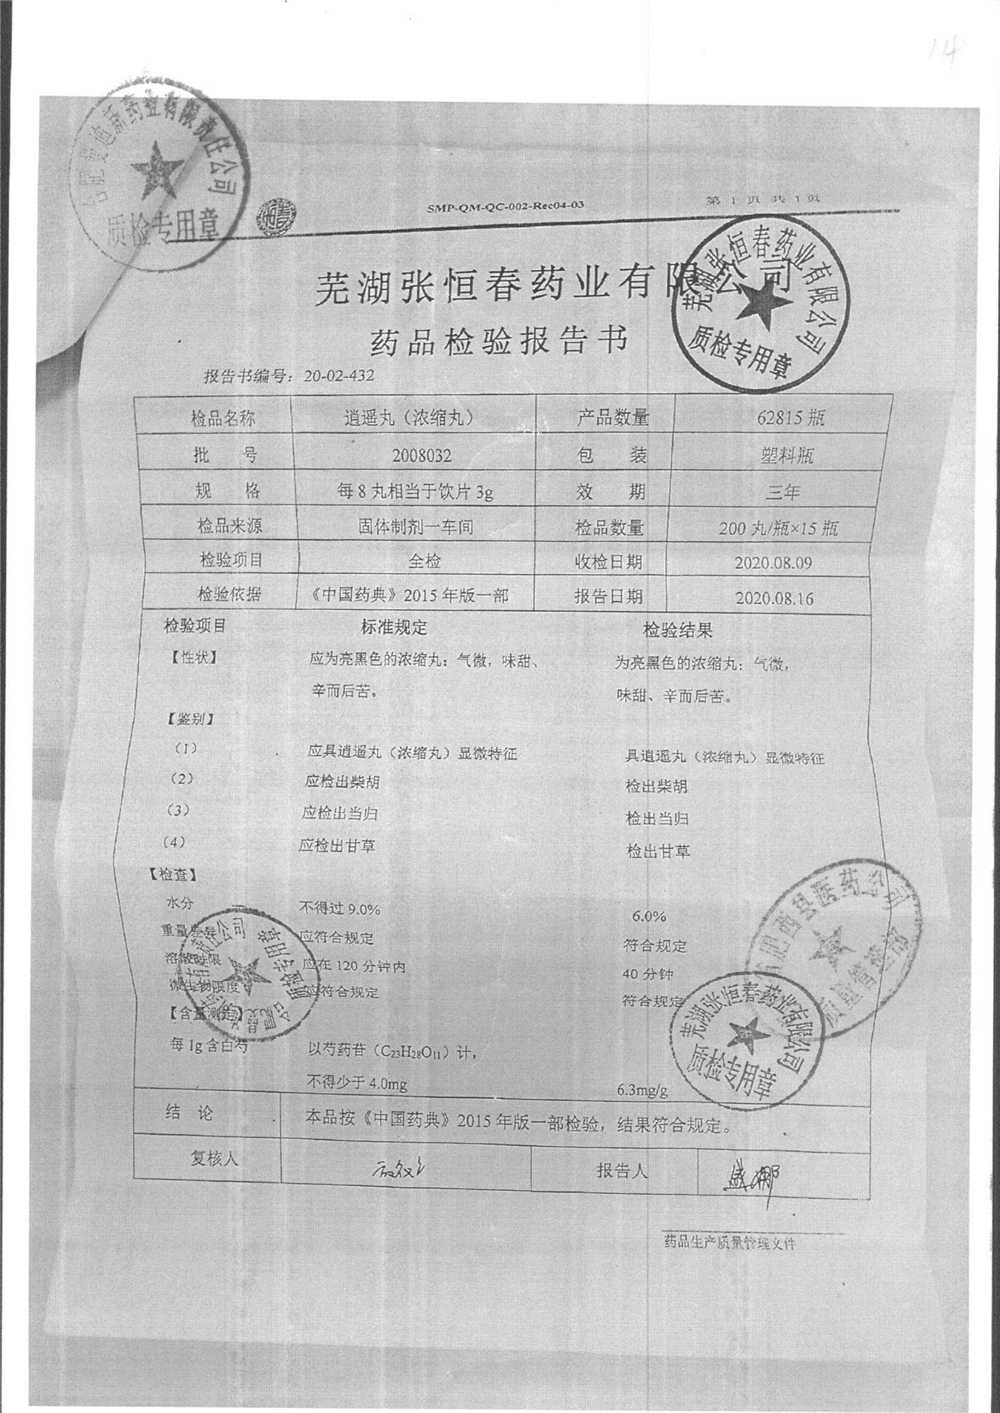 14
SMP-QM-QC-002-Rec04-03
第 1 页 共 1 页
芜湖张恒春药业有限公司
药品检验报告书
报告书编号：20-02-432
检品名称 逍遥丸（浓缩丸） 产品数量 62815 瓶
批 号 2008032 包 装 塑料瓶
规 格 每 8 丸相当于饮片 3g 效 期 三年
检品来源 固体制剂一车间 检品数量 200 丸/瓶×15 瓶
检验项目 全检 收检日期 2020.08.09
检验依据 《中国药典》2015 年版一部 报告日期 2020.08.16
检验项目 标准规定 检验结果
【性状】 应为亮黑色的浓缩丸；气微，味甜、 为亮黑色的浓缩丸；气微，
辛而后苦。 味甜、辛而后苦。
【鉴别】
（1） 应具逍遥丸（浓缩丸）显微特征 具逍遥丸（浓缩丸）显微特征
（2） 应检出柴胡 检出柴胡
（3） 应检出当归 检出当归
（4） 应检出甘草 检出甘草
【检查】
水分 不得过 9.0% 6.0%
重量差异 应符合规定 符合规定
溶散时限 应在 120 分钟内 40 分钟
微生物限度 应符合规定 符合规定
【含量测定】
每 1g 含白芍 以芍药苷（C23H28O11）计，
不得少于 4.0mg 6.3mg/g
结 论 本品按《中国药典》2015 年版一部检验，结果符合规定。
复核人 报告人
药品生产质量管理文件
芜湖张恒春药业有限公司
质检专用章
药业有限责任公司
质检专用章
芜湖张恒春药业有限公司
质检专用章
肥西县医药公司